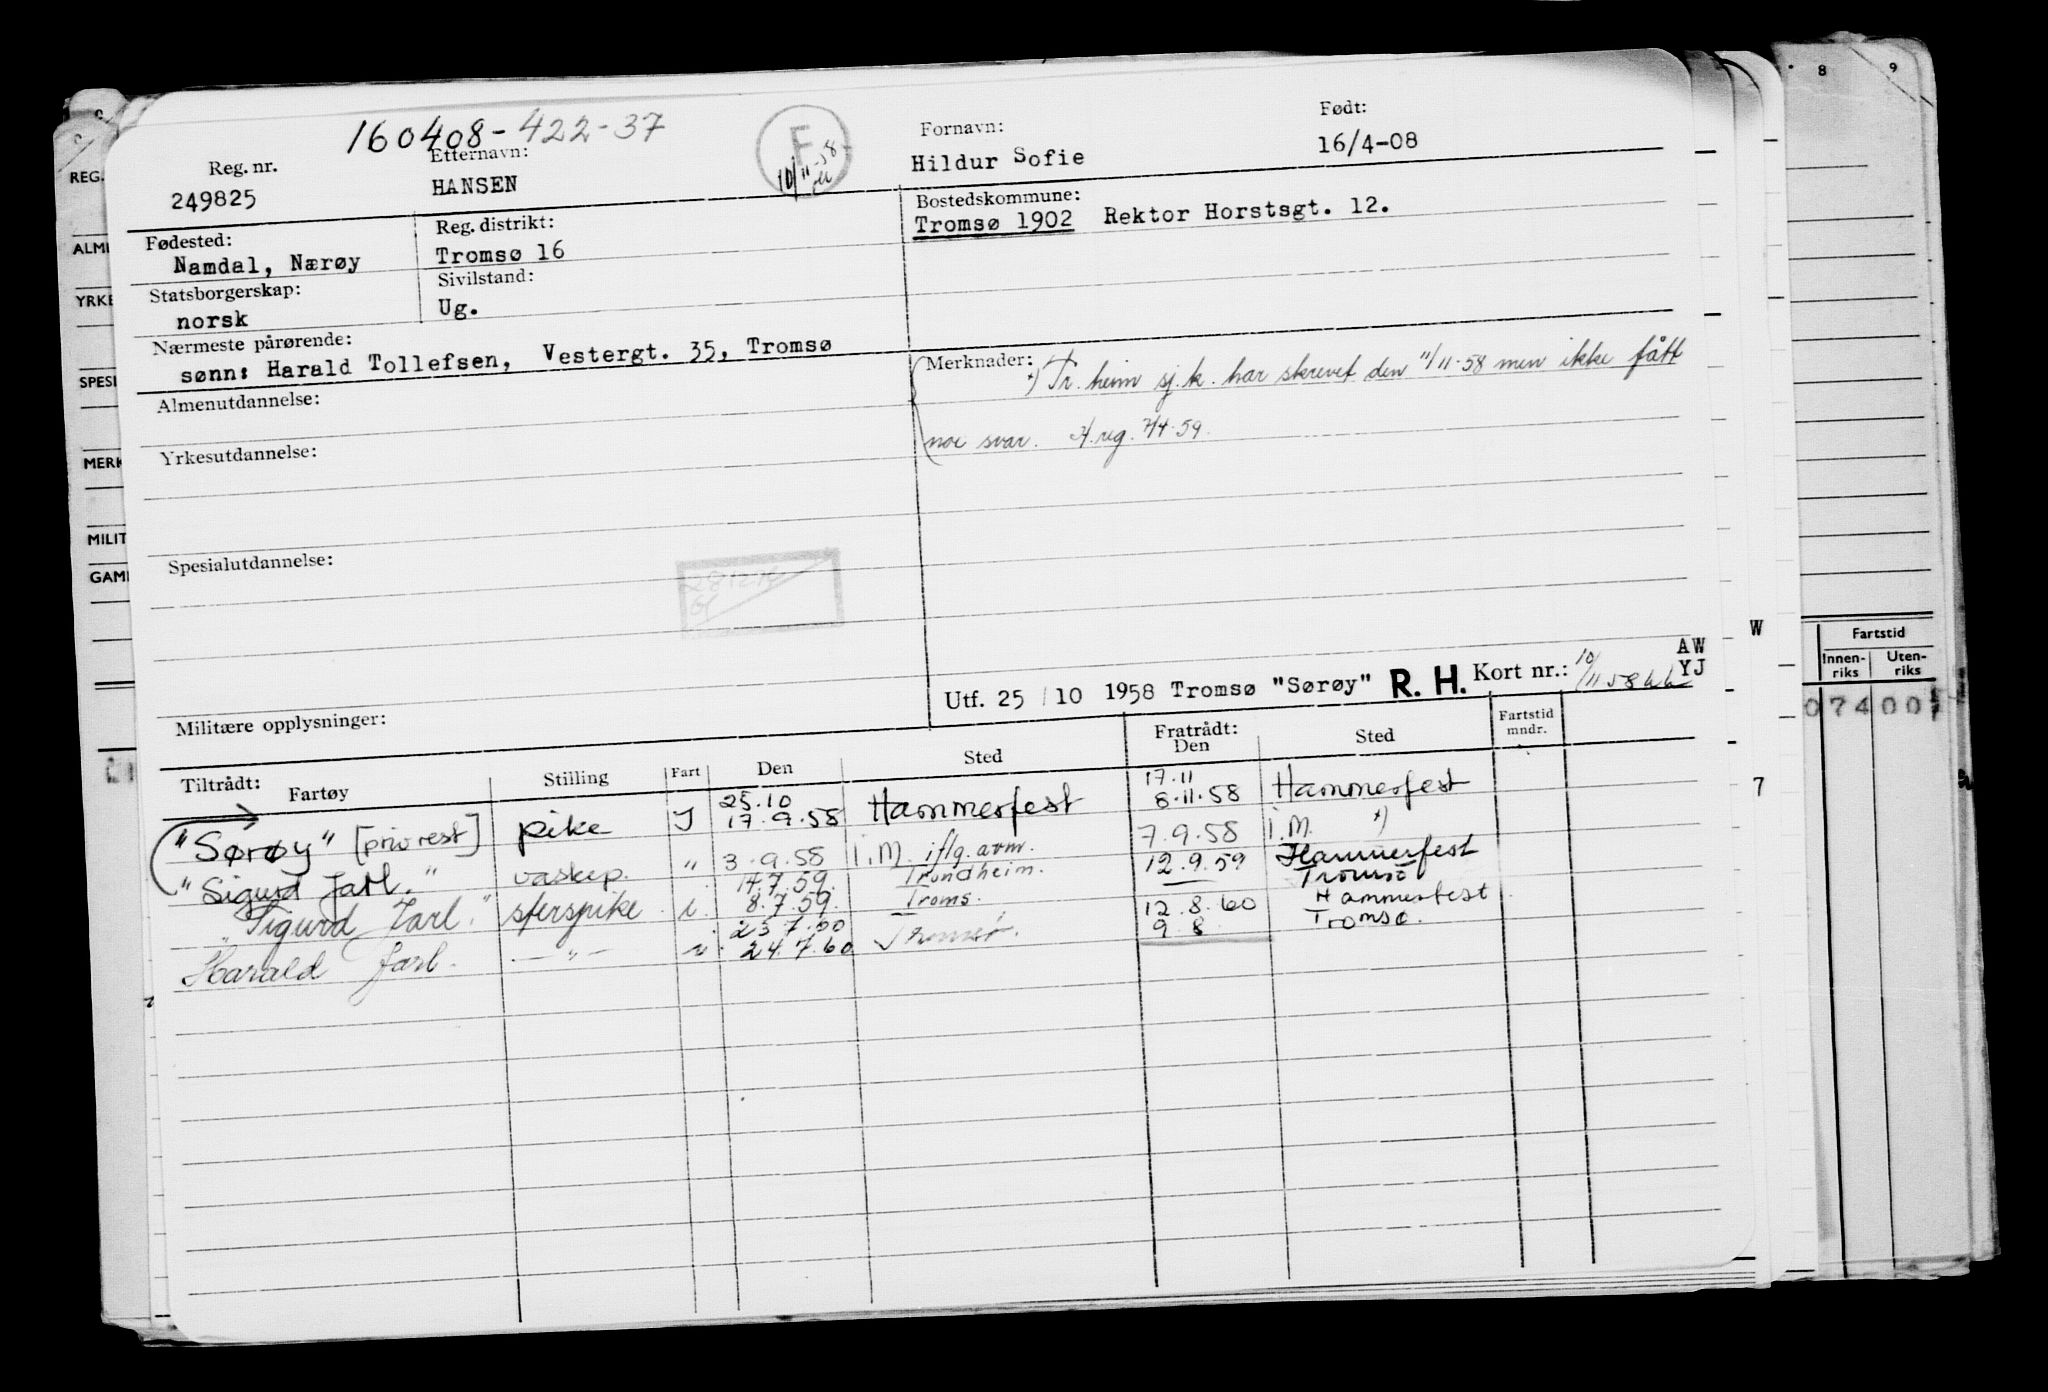 160408-422-37
Reg. nr. Etternavn: F Fornavn: Født:
249825 HANSEN 10/11-58 Hildur Sofie 16/4-08
Fødested: Reg. distrikt: Bostedskommune:
Namdal, Nærøy Tromsø 16 Tromsø 1902 Rektor Horstsgt. 12.
Statsborgerskap: Sivilstand:
norsk Ug.
Nærmeste pårørende:
sønn: Harald Tollefsen, Vestergt. 35, Tromsø
Merknader: *) Tr.heim sj.k. har skrevet den 11/11-58 men ikke fått
noe svar. A.reg. 7/4-59.
Almenutdannelse:
Yrkesutdannelse:
Spesialutdannelse:
Militære opplysninger:
Utf. 25/10 1958 Tromsø "Sørøy" R. H. Kort nr.: 10/11 58
AW
YJ
Tiltrådt: Fratrådt:
Fartøy Stilling Fart Den Sted Den Sted Fartstid mndr.
25.10 17.11
"Sørøy" [priv rest] pike I 17.9.58 Hammerfest 8.11.58 Hammerfest
"Sigurd Jarl." vaskep. " 3.9.58 i.M. iflg. avm. 7.9.58 i.M. *)
14.7.59. Trondheim. 12.9.59 Hammerfest
"Sigurd Jarl." sterspike i. 8.7.59. Troms. Tromsø
23.7.60 12.8.60 Hammerfest
Harald Jarl. —"— i. 24.7.60 Tromsø. 9.8 Tromsø.
REG.
ALME
YRKE
SPESI
MERK
MILIT
GAML
8 9
W
7
Fartstid
Innen-riks Uten-riks
07400